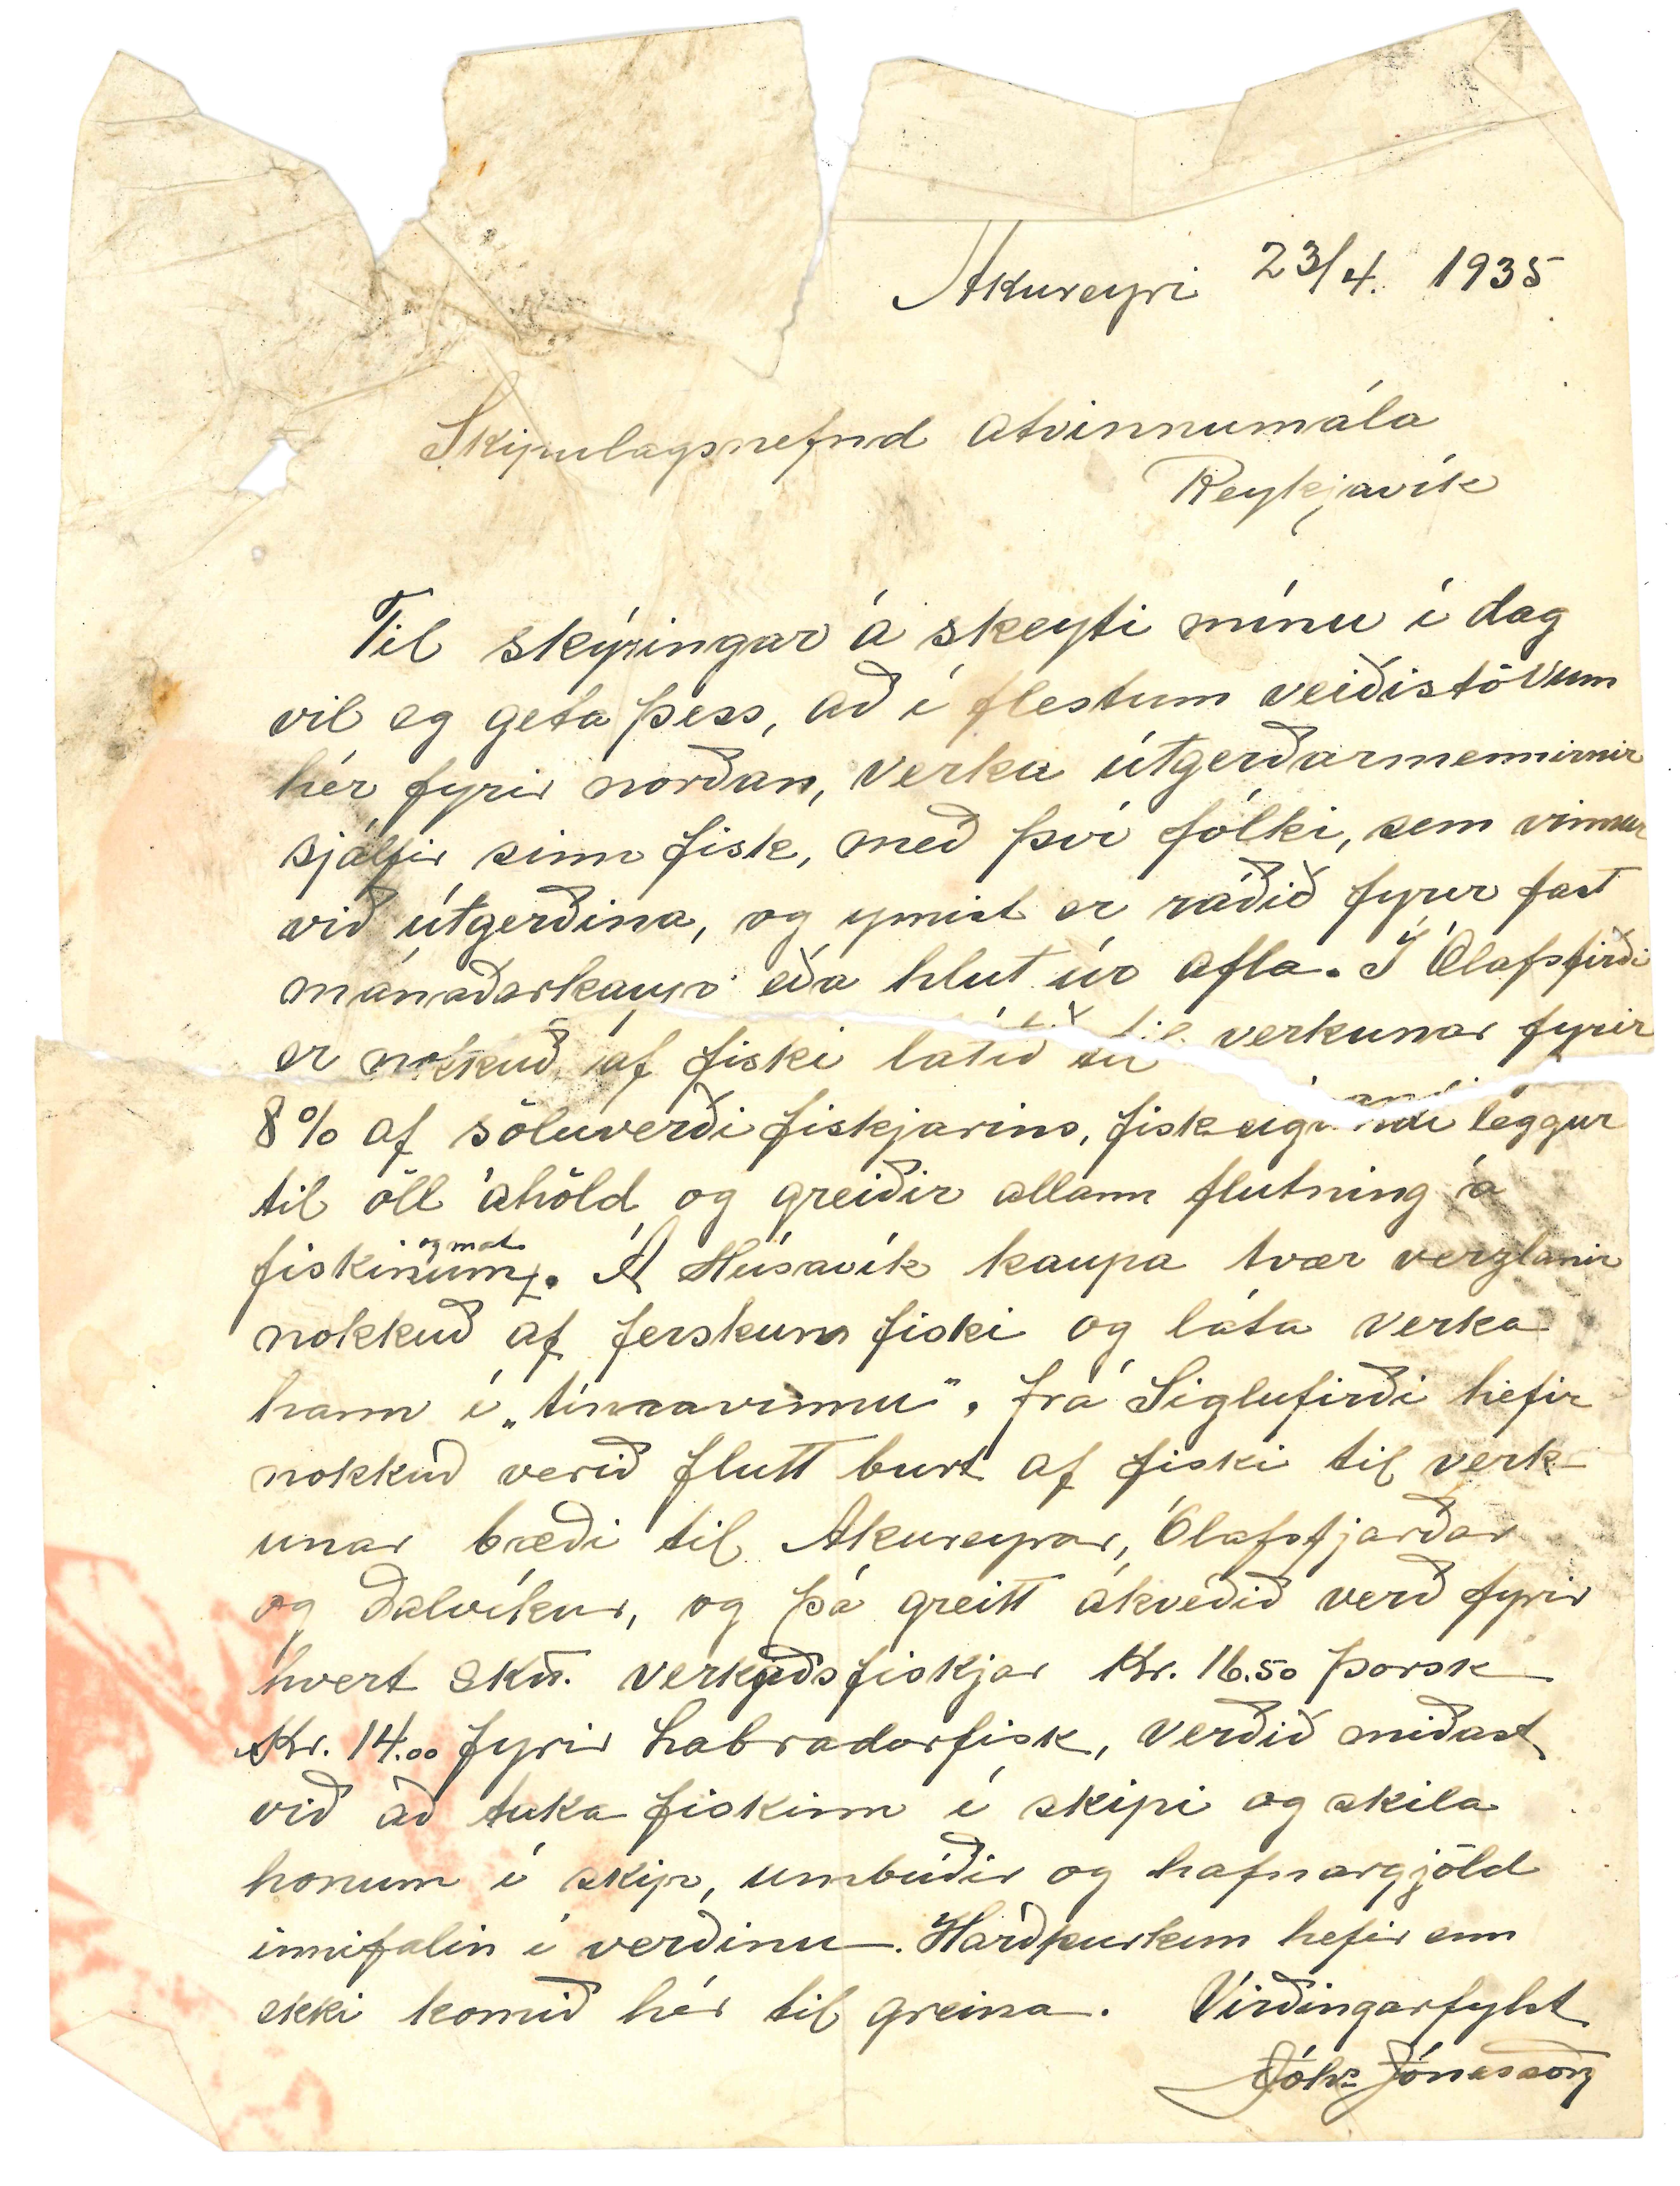 Akureyri 23/4. 1935
Skipulagsnefnd atvinnumála
Reykjavík
Til skýringar á skeyti mínu í dag
vil eg geta þess, að í flestum veiðistöðvum
hér fyrir norðan, verka útgerðarmennirnir
sjálfir sinn fisk, með því fólki, sem vinnur
við útgerðina, og ymist er ráðið fyrir fast
mánaðarkaup eða hlut úr afla. Í Ólafsfirði
er nokkuð af fiski látið til verkunar fyrir
8% af söluverði fiskjarins, fiskeigandi leggur
til öll áhöld og greiðir allann flutning á
fiskinum og mat. Á Húsavík kaupa tvær verzlanir
nokkuð af ferskum fiski og láta verka
hann í „tímavinnu". frá Siglufirði hefir
nokkuð verið flutt burt af fiski til verk-
unar bæði til Akureyrar, Ólafsfjarðar
og Dalvíkur, og þá greitt ákveðið verð fyrir
hvert skp. verkaðs fiskjar Kr. 16.50 þorsk
Kr. 14.00 fyrir Labradorfisk, verðið miðast
við að taka fiskinn í skipi og skila
honum í skip, umbúðir og hafnargjöld
innifalin í verðinu. Harðþurkun hefir enn
ekki komið hér til greina. Virðingarfylst
Jóhs Jónasson